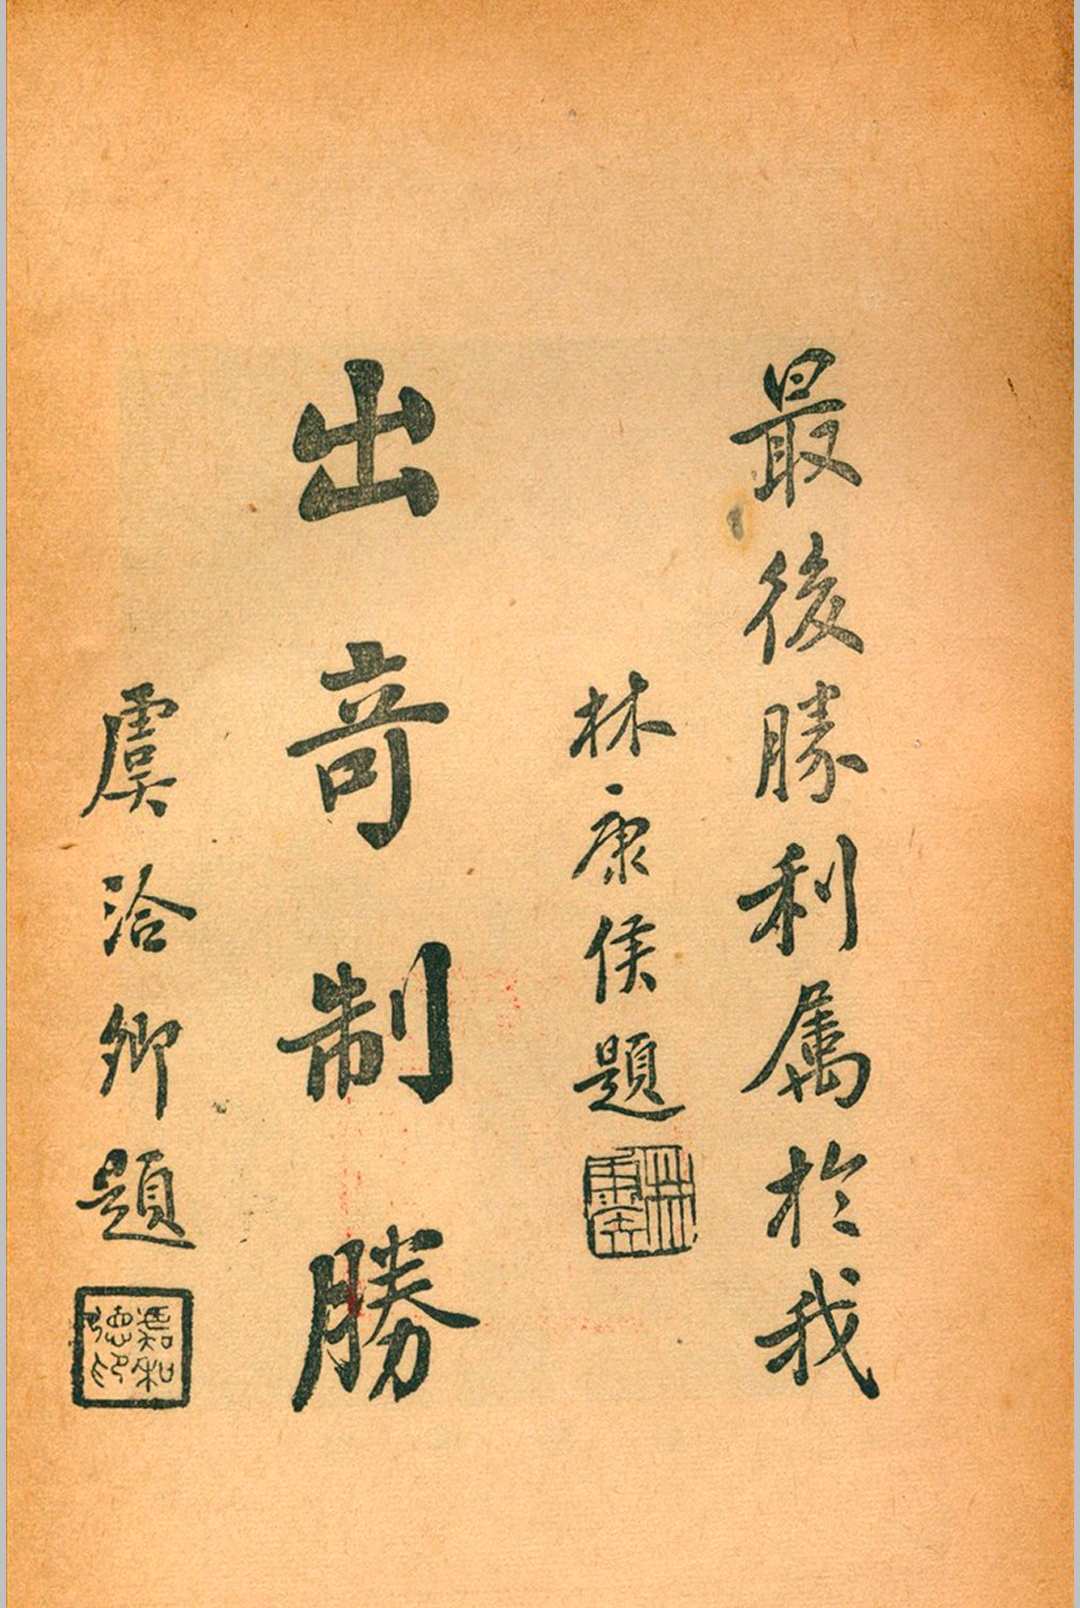 最後勝利属於我
林康侯題
出奇制勝
虞洽卿題